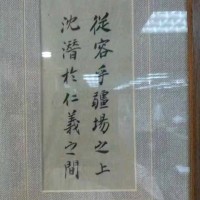 從容乎疆場之上
沈潛於仁義之間